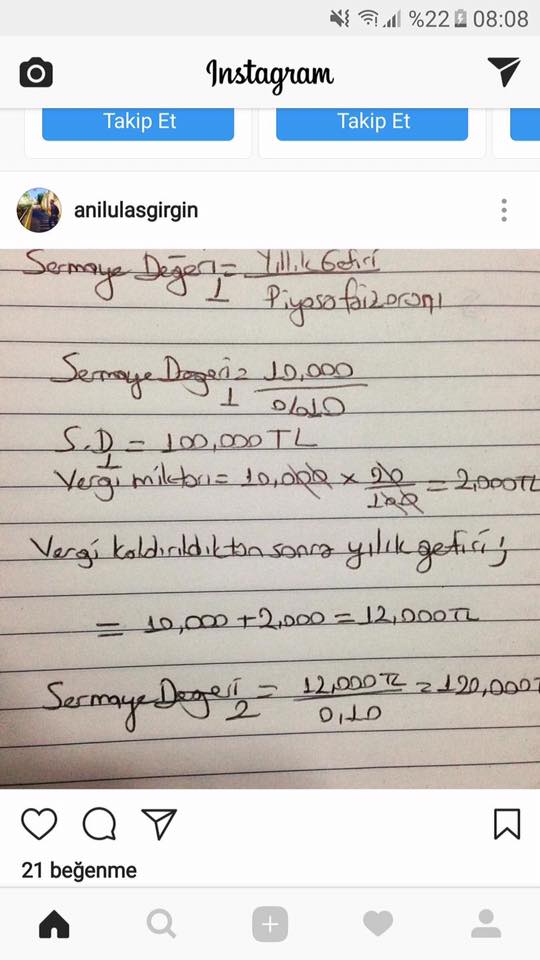 %22 08:08
Instagram
Takip Et Takip Et
anilulasgirgin
Sermaye Değeri 1 = Yıllık Getiri
Piyasa faiz oranı
Sermaye Degeri 1 = 10,000
%10
S.D 1 = 100,000 TL
Vergi miktarı = 10,000 x 20 / 100 = 2,000TL
Vergi kaldırıldıktan sonra yıllık getiri;
= 10,000 + 2,000 = 12,000TL
Sermaye Degeri 2 = 12,000 TL / 0,10 = 120,000T
21 beğenme